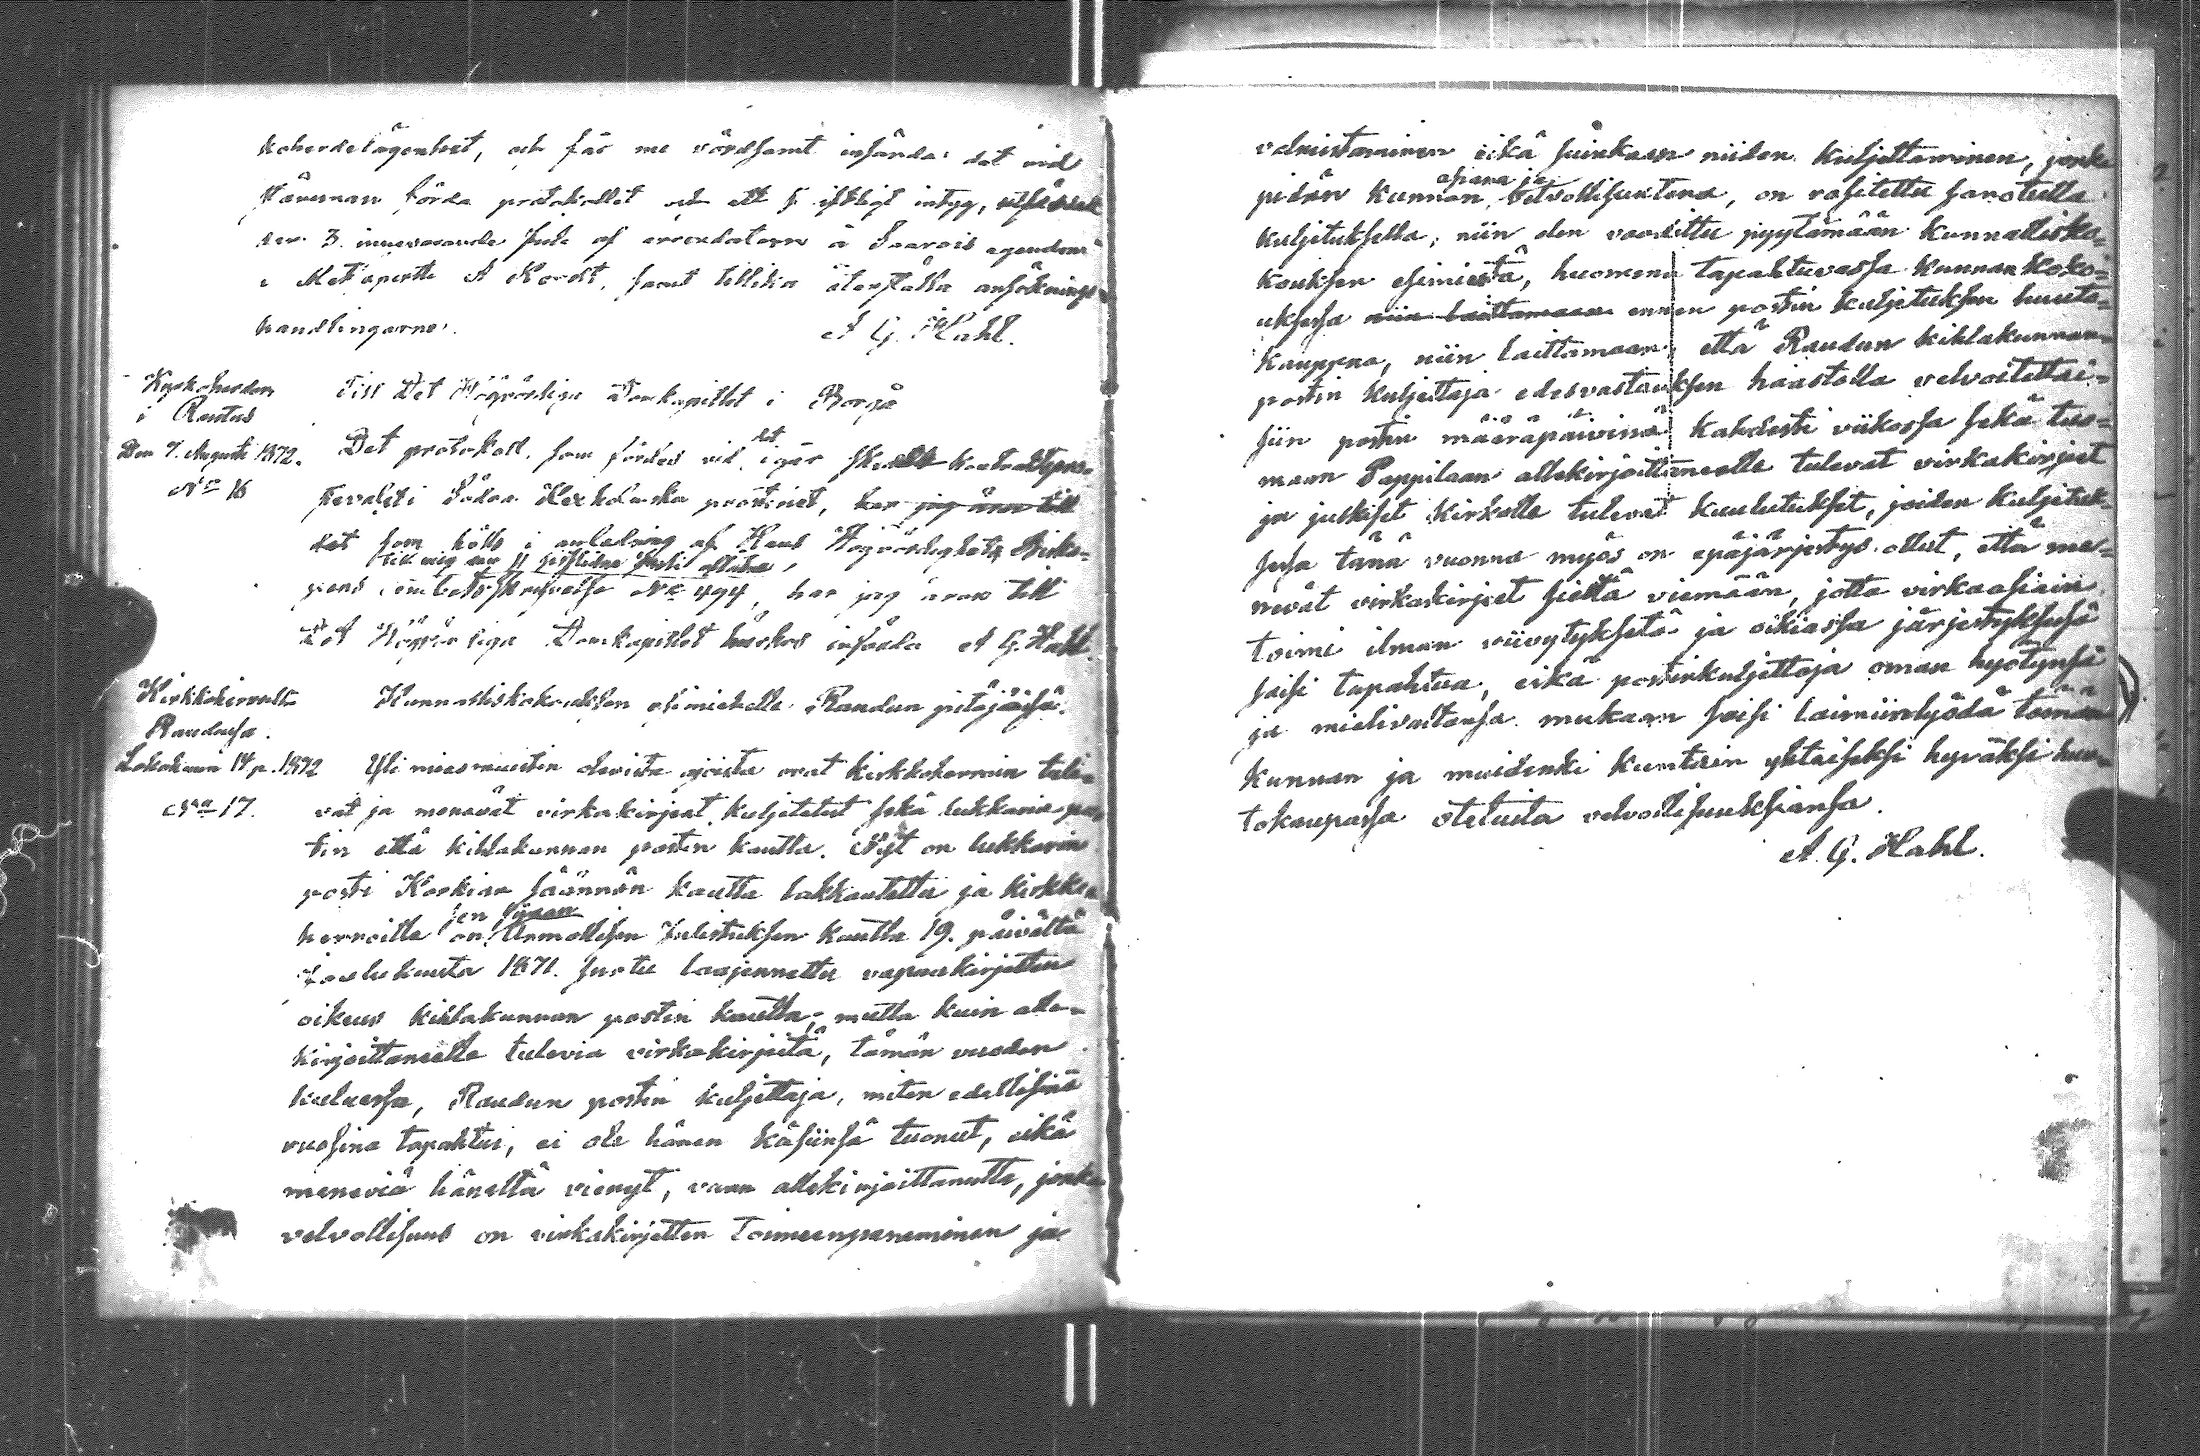 koherdelägenhet, och får me vördsamt insända: det vid
stämman förda protokollet och ett skriftligt intyg,
af arrendatorn å Saarois egendom
i Metsäpertti A Kordt, samt tillika återställa ansöknings-
handlingarne.
A G. Hahl.
Kyrkoherden
i Rautus
Den 7. Augusti 1872.
No 16
Till Det Högvördiga Domkapitlet i Borgå
Det protokoll, som fördes vid det igår
i Södra Kexholmska prosteriet, har jag äran till
det som hölls i anledning af Hans Högvördighets Bisko-
till mig
pens embetsskrifvelse No 494, har jag äran till
Det Högvördiga Domkapitlet härhos insända A G. Hahl.
Kirkkoherralta
Raudussa.
Lokakuun 14 p. 1872
No 17.
Kunnalliskokouksen esimiehelle Raudun pitäjässä.
Yli miesmuistin olevista ajoista ovat kirkkoherran tule-
vat ja menevät virkakirjeet kuljetetut sekä lukkarin pos-
tin että kihlakunnan postin kautta. Nyt on lukkarin
posti Korkian säännön kautta lakkautettu ja kirkko-
sen sijaan
herroille on Armollisen Julistuksen kautta 19. päivältä
Joulukuuta 1871. suotu laajennettu vapaakirjetten
oikeus kihlakunnan postin kautta; mutta kuin alle-
kirjoittaneelle tulevia virkakirjeitä, tämän vuoden
kuluessa, Raudun postin kuljettaja, miten edellisinä
vuosina tapahtui, ei ole hänen käsiinsä tuonut, eikä
meneviä häneltä vienyt, vaan allekirjoittanutta, jonka
velvollisuus on virkakirjetten toimeenpaneminen ja
valmistaminen eikä suinkaan niiden kuljettaminen, jonka
asiana ja
pidän kunnan velvollisuutena, on rasitettu sanotulla
kuljetuksella, niin olen vaadittu pyytämään kunnallisko-
kouksen esimiestä, huomenna tapahtuvassa kunnan koko-
uksessa niin laittamaan ennen postin kuljetuksen huuto-
kauppaa, niin laittamaan, että Raudun kihlakunnan-
postin kuljettaja edesvastauksen haastolla velvoitettai-
siin postin määräpäivinä kahdesti viikossa sekä tuo-
maan Pappilaan allekirjoittaneelle tulevat virkakirjeet
ja julkiset kirkolle tulevat kuulutukset, joiden kuljetuk-
sessa tänä vuonna myös on epäjärjestys ollut, että me-
nevät virkakirjeet sieltä viemään, jotta virkaasiain
toimi ilman viivytyksettä ja oikiassa järjestyksessä
saisi tapahtua, eikä postinkuljettaja oman hyötynsä
ja mielivaltansa mukaan saisi laiminlyödä tämän
kunnan ja muidenki kuntain yhteiseksi hyväksi huu-
tokaupassa otetuita velvollisuuksiansa.
A. G. Hahl.